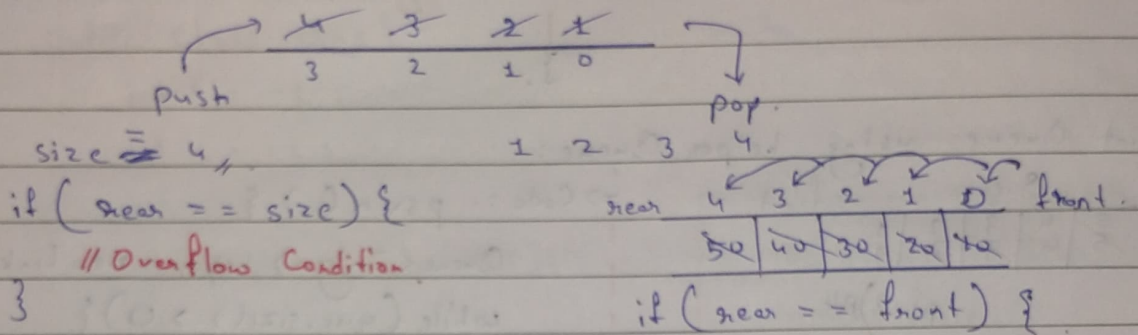 4 3 2 1
3 2 1 0
push
pop.
size = 4
1 2 3 4
if ( rear == size ) {
// Overflow Condition
}
rear 4 3 2 1 0 front.
50 40 30 20 10
if ( rear == front ) {